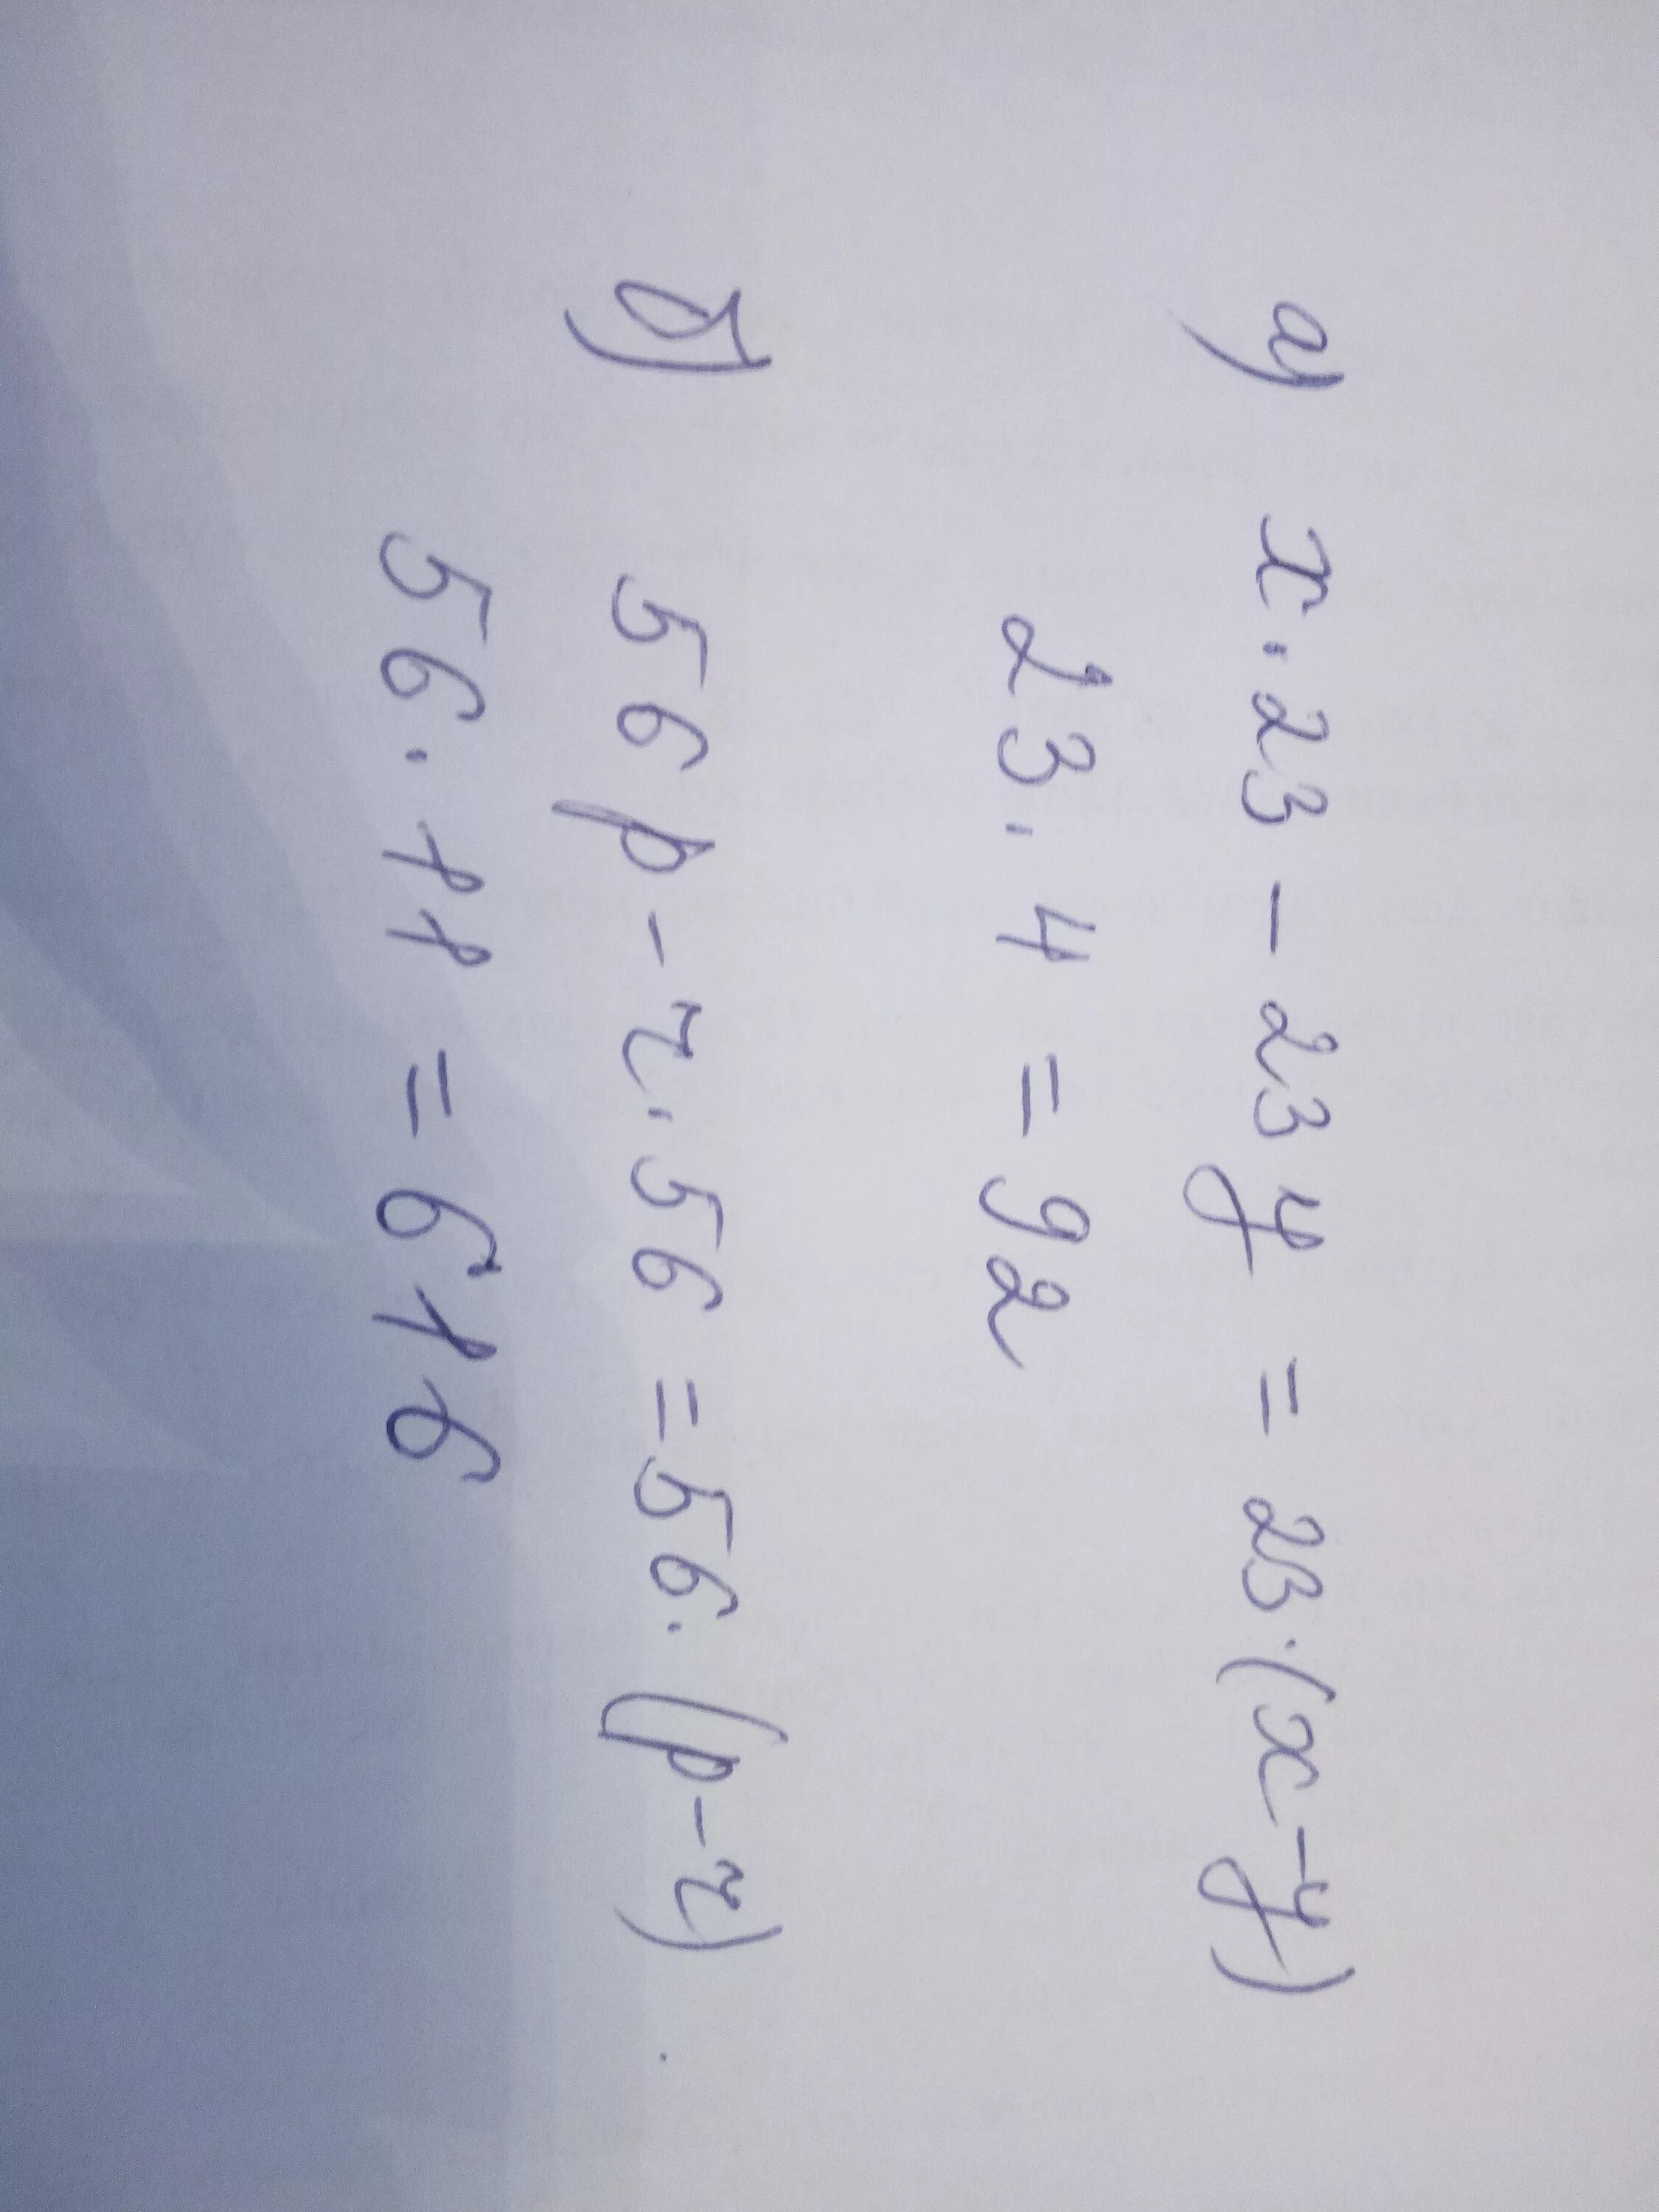 а) x · 23 - 23y = 23 · (x - y)
23 · 4 = 92
б) 56p - r · 56 = 56 · (p - r)
56 · 11 = 616